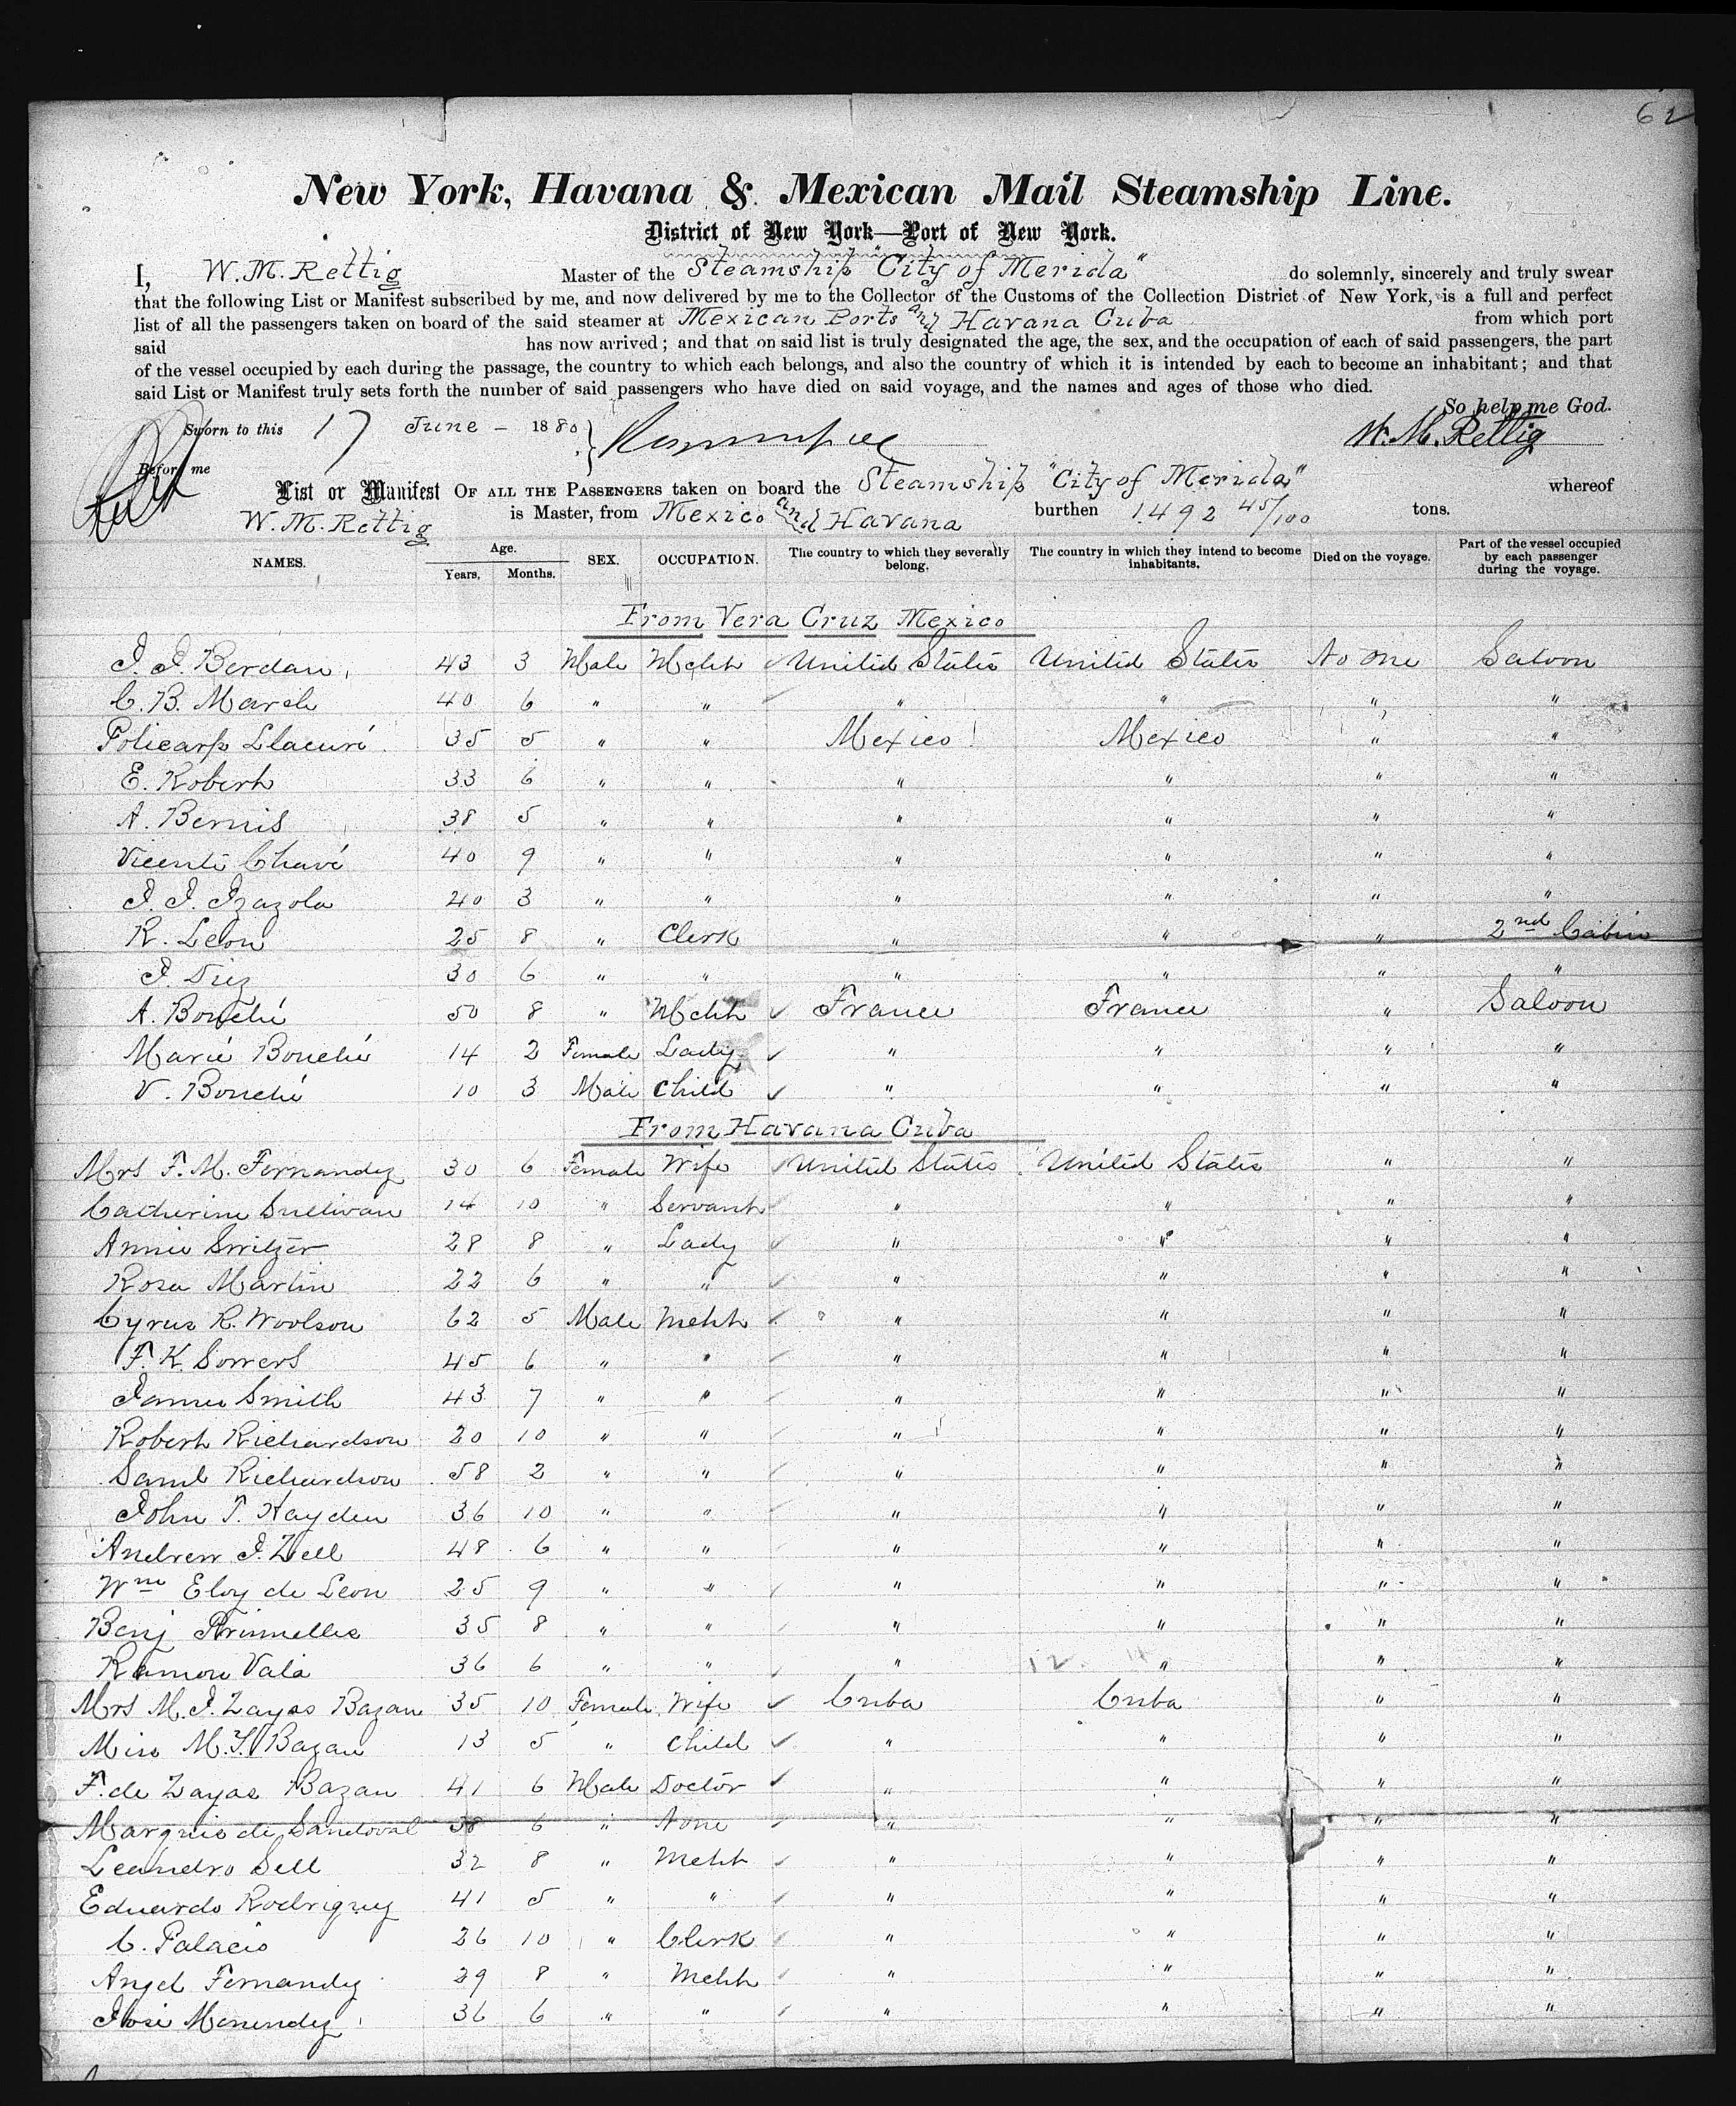 62
New York, Havana & Mexican Mail Steamship Line.
District of New York—Port of New York.
I, W. M. Rettig Master of the Steamship "City of Merida" do solemnly, sincerely and truly swear
that the following List or Manifest subscribed by me, and now delivered by me to the Collector of the Customs of the Collection District of New York, is a full and perfect
list of all the passengers taken on board of the said steamer at Mexican Ports and Havana Cuba from which port
said has now arrived; and that on said list is truly designated the age, the sex, and the occupation of each of said passengers, the part
of the vessel occupied by each during the passage, the country to which each belongs, and also the country of which it is intended by each to become an inhabitant; and that
said List or Manifest truly sets forth the number of said passengers who have died on said voyage, and the names and ages of those who died.
So help me God.
Sworn to this 17 June - 1880 W. M. Rettig
Before me
List or Manifest OF ALL THE PASSENGERS taken on board the Steamship "City of Merida" whereof
W. M. Rettig is Master, from Mexico and Havana burthen 1492 45/100 tons.
NAMES. Age. Years, Months. SEX. OCCUPATION. The country to which they severally belong. The country in which they intend to become inhabitants. Died on the voyage. Part of the vessel occupied by each passenger during the voyage.
From Vera Cruz Mexico
J. J. Berdan 43 3 Male Mcht United States United States No one Saloon
C. B. March 40 6 " " " " " "
Policarp Llacuri 35 5 " " Mexico Mexico " "
E. Robert 33 6 " " " " " "
A. Bernis 38 5 " " " " " "
Vicente Chavé 40 9 " " " " " "
J. J. Izazola 40 3 " " " " " "
R. Leon 25 8 " Clerk " " " 2nd Cabin
J. Diez 30 6 " " " " " "
A. Bouché 50 8 " Mcht France France " Saloon
Marie Bouché 14 2 Female Lady " " " "
V. Bouché 10 3 Male Child " " " "
From Havana Cuba
Mrs F. M. Fernandez 30 6 Female Wife United States United States " "
Catherine Sullivan 14 10 " Servant " " " "
Annie Switzer 28 8 " Lady " " " "
Rosa Martin 22 6 " " " " " "
Cyrus R. Woolson 62 5 Male Mcht " " " "
F. K. Sowers 45 6 " " " " " "
James Smith 43 7 " " " " " "
Robert Richardson 20 10 " " " " " "
Saml Richardson 58 2 " " " " " "
John T. Hayden 36 10 " " " " " "
Andrew J. Zell 48 6 " " " " " "
Wm Eloy de Leon 25 9 " " " " " "
Benj 35 8 " " " " " "
Ramon Vala 36 6 " " " 12 " " "
Mrs M. J. Zayas Bazan 35 10 Female Wife Cuba Cuba " "
Miss M. Y. Bazan 13 5 " Child " " " "
F. de Zayas Bazan 41 6 Male Doctor " " " "
Marquis de Sandoval 38 6 " None " " " "
Leandro Sell 32 8 " Mcht " " " "
Eduardo Rodriguez 41 5 " " " " " "
C. Palacio 26 10 " Clerk " " " "
Angel Fernandez 29 8 " Mcht " " " "
José Menendez 36 6 " " " " " "